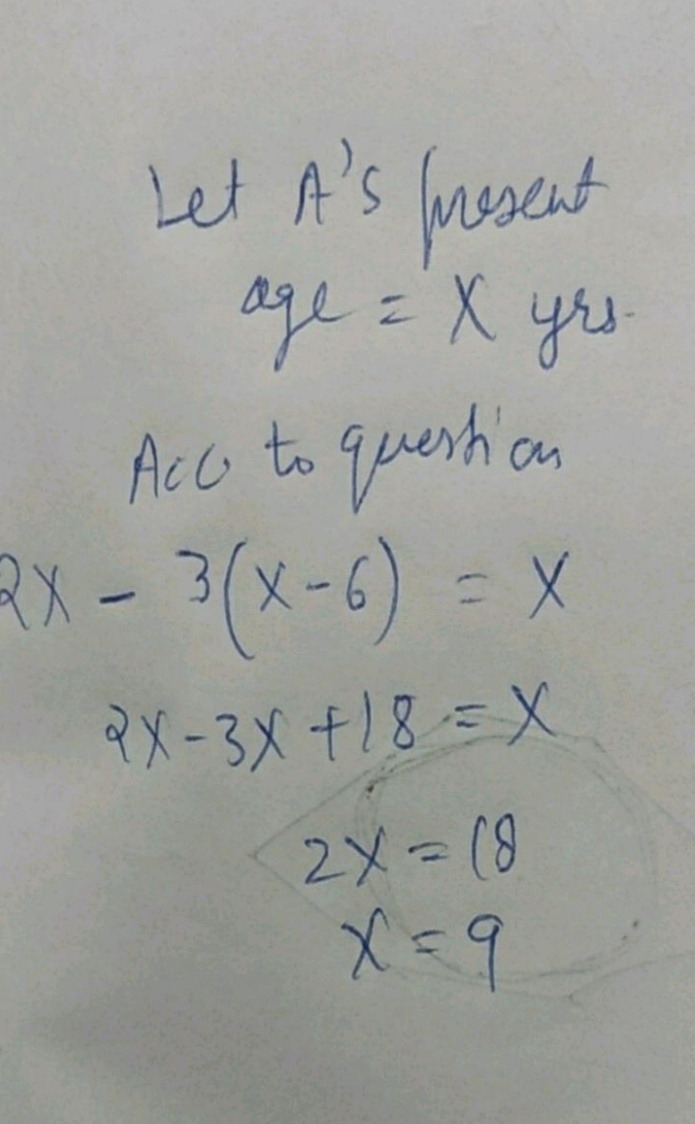 Let A's present
age = X yrs.
Acc to question
2X - 3(X-6) = X
2X-3X+18 = X
2X = 18
X = 9